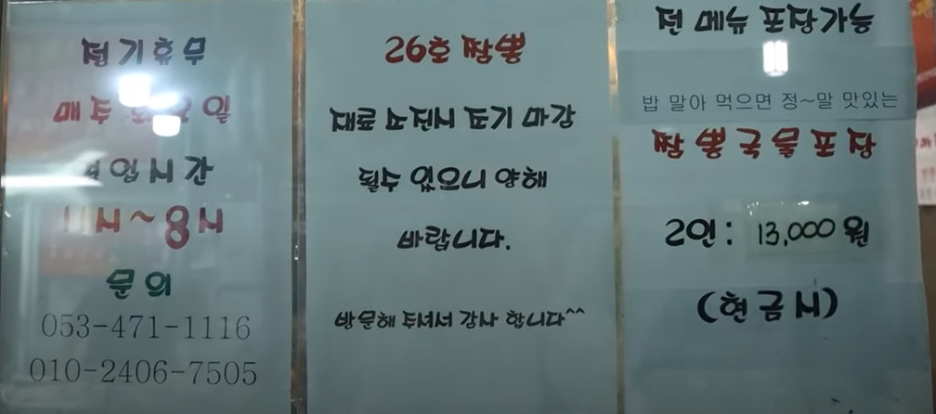 정기휴무
매주 일
업시간
시~8시
문의
053-471-1116
010-2406-7505
26호 짬뽕
재료 소진시 조기 마감
될수 있으니 양해
바랍니다.
방문해 주셔서 감사 합니다^^
전 메뉴 포장가능
밥 말아 먹으면 정~말 맛있는
짬뽕국물포장
2인: 13,000원
(현금시)